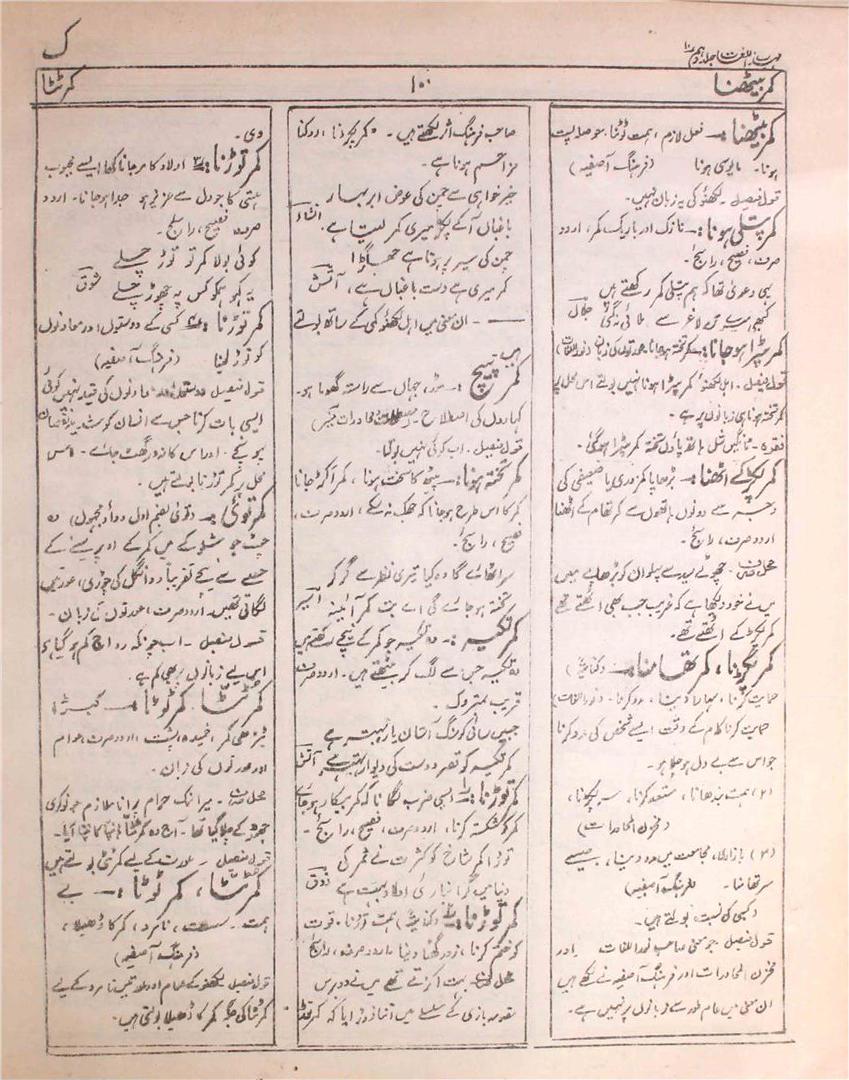 ک
مہذب اللغات جلد دہم
کمر بیٹھنا
۱۰۰
کمر ٹٹا
کمر بیٹھنا :۔ فعل لازم ، ہمت ٹوٹنا ، حوصلہ پست
ہونا ۔ مایوسی ہونا (فرہنگ آصفیہ)
قول فیصل ۔ لکھنؤ کی یہ زبان نہیں ۔
کمر پتلی ہونا :۔ نازک اور باریک کمر ، اردو
صرف ، فصیح ، رائج ۔
یہی دعویٰ تھا کہ ہم پتلی کمر رکھتے ہیں
کبھی میرے تن لاغر سے ملائی نہ گئی جلال
کمر پٹرا ہو جانا :۔ کمر تختہ ہو جانا ، عورتوں کی زبان (نور اللغات)
قول فیصل ۔ اہل لکھنؤ کمر پٹرا ہونا نہیں بولتے اس محل پر
کمر تختہ ہونا ہی زبانوں پر ہے ۔
فقرہ ۔ ٹانگیں شل ہاتھ پاؤں تختہ کمر پٹرا ہو گئی ۔
کمر پکڑ کے اٹھنا :۔ بڑھاپا کمزوری یا ضعیفی کی
وجہ سے دونوں ہاتھوں سے کمر تھام کے اٹھنا
اردو صرف ، رائج ۔
محل صرف ۔ چھوٹے سید سے پہلوان کو بڑھاپے میں
میں نے خود دیکھا ہے کہ غریب جب بھی اٹھتے تھے
کمر پکڑ کے اٹھتے تھے ۔
کمر پکڑنا ، کمر تھامنا :۔ (کنایۃً)
حمایت کرنا ، سہارا دینا ، مدد کرنا ۔ (نور اللغات)
حمایت کرنا کام کے وقت ایسے شخص کی مدد کرنا
جو اس سے بے دل ہو چلا ہو ۔
(۲) ہمت بندھانا ، مستعد کرنا ، سر پکڑنا ،
(مخزن المحاورات)
(۳) بازاری ، مجامعت میں مدد دینا ، جیسے
سر تھامنا ۔ (فرہنگ آصفیہ)
دکسی کی نسبت بولتے ہیں ۔
قول فیصل ۔ جو معنی صاحب نور اللغات اور
مخزن المحاورات اور فرہنگ آصفیہ نے لکھے ہیں
ان معنی میں عام طور سے زبانوں پر نہیں ہے ۔
صاحب فرہنگ اثر لکھتے ہیں ۔ "کمر پکڑنا" ، روکنا
مزاحم ہونا ہے ۔
خیر خواہی سے چمن کی عوض ابر بہار
باغباں آ کے پکڑ میری کمر لیتا ہے انشاء
چمن کی سیر پر ہونا ہے جھگڑا
کمر میری ہے دست باغباں ہے ، آتش
ان معنی میں اہل لکھنؤ کمی کے ساتھ بولتے
ہیں
کمر پیچ :۔ موڑ ، جہاں سے راستہ گھوما ہو ۔
کہاروں کی اصطلاح ۔
قول فیصل ۔ اب کوئی نہیں بولتا ۔
کمر تختہ ہونا :۔ پیٹھ کا سخت ہونا ، کمر اکڑ جانا
کمر کا اس طرح ہو جانا کہ جھک نہ سکے ، اردو صرف ،
فصیح ، رائج ۔
سر اٹھائے گا وہ کیا تیری نظر سے گر کر
تختہ ہو جائے گی اے بت کمر آئینہ اسیر
کمر تکیہ :۔ وہ تکیہ جو کمر کے پیچھے رکھتے ہیں
وہ تکیہ جس سے لگ کر بیٹھتے ہیں ۔ اردو صرف
قریب بمتروک ۔
جبیں سائی کو سنگ آستان یار بہتر ہے
کمر تکیہ کو قصر دوست کی دیوار بہتر ہے آتش
کمر توڑنا :۔ ۱؎ ایسی ضرب لگانا کہ کمر بیکار ہو جائے
کمر کو شکستہ کرنا ، اردو صرف ، فصیح ، رائج ۔
توڑا کمر شاخ کو کثرت نے ثمر کی
دنیا میں گرانباری اولاد غضب ہے ذوق
کمر توڑنا :۔ ۲؎ (کنایۃً) ہمت توڑنا ، قوت
کو ختم کرنا ، زور گھٹا دینا ، اردو صرف ، رائج
محل صرف ۔ بہت اکڑتے تھے میں نے دو برس
مقدمہ بازی کے سلسلے میں اتنا دوڑایا کہ کمر توڑ
دی ۔
کمر توڑنا :۔ ۳؎ اولاد کا مر جانا کہا ایسے محبوب
ہستی کا جو دل سے عزیز ہو جدا ہو جانا ۔ اردو
صرف ، فصیح ، رائج ۔
کوئی بولا کمر تو توڑ چلے
یہ کہو ہم کو کس پہ چھوڑ چلے شوق
کمر توڑنا :۔ ۴؎ کسی کے دوستوں اور معاونوں
کو توڑ لینا (فرہنگ آصفیہ)
قول فیصل دوستوں اور معاونوں کی قید نہیں کوئی
ایسی بات کرنا جس سے انسان کو سخت نقصان
پہونچے ۔ اور اس کا زور گھٹ جائے ۔ اس
محل پر کمر توڑنا بولتے ہیں ۔
کمر توئی :۔ (توئی بضم اول و واؤ مجہول) وہ
چٹ جو شلوکے میں کمر کے اوپر سینے کے
حصے سے نیچے تقریباً دو انگل کی چوڑی ، عورتیں
لگاتی تھیں ۔ اردو صرف ، عورتوں کی زبان ۔
قول فیصل ۔ اب چونکہ رواج کم ہو گیا ہے
اس لیے زبانوں پر بھی کم ہے ۔
کمر ٹٹا ، کمر ٹوٹا :۔ کبڑا ،
ٹیڑھی کمر ، خمیدہ پشت ، اردو صرف عوام
اور عورتوں کی زبان ۔
محل صرف ۔ میرا نمک حرام پرانا ملازم جو نوکری
چھوڑ کے چلا گیا تھا ۔ آج وہ کمر ٹٹا ہانپتا کانپتا آیا ۔
قول فیصل ۔ عورت کے لیے کمر ٹٹی بولتے ہیں
کمر ٹٹا ، کمر ٹوٹا :۔ بے
ہمت ۔ سست ، نامرد ، کمر کا ڈھیلا ،
(فرہنگ آصفیہ)
قول فیصل لکھنؤ کے عوام اور عورتیں نامرد کے لیے
کمر ٹٹا کی جگہ کمر کا ڈھیلا بولتی ہیں ۔